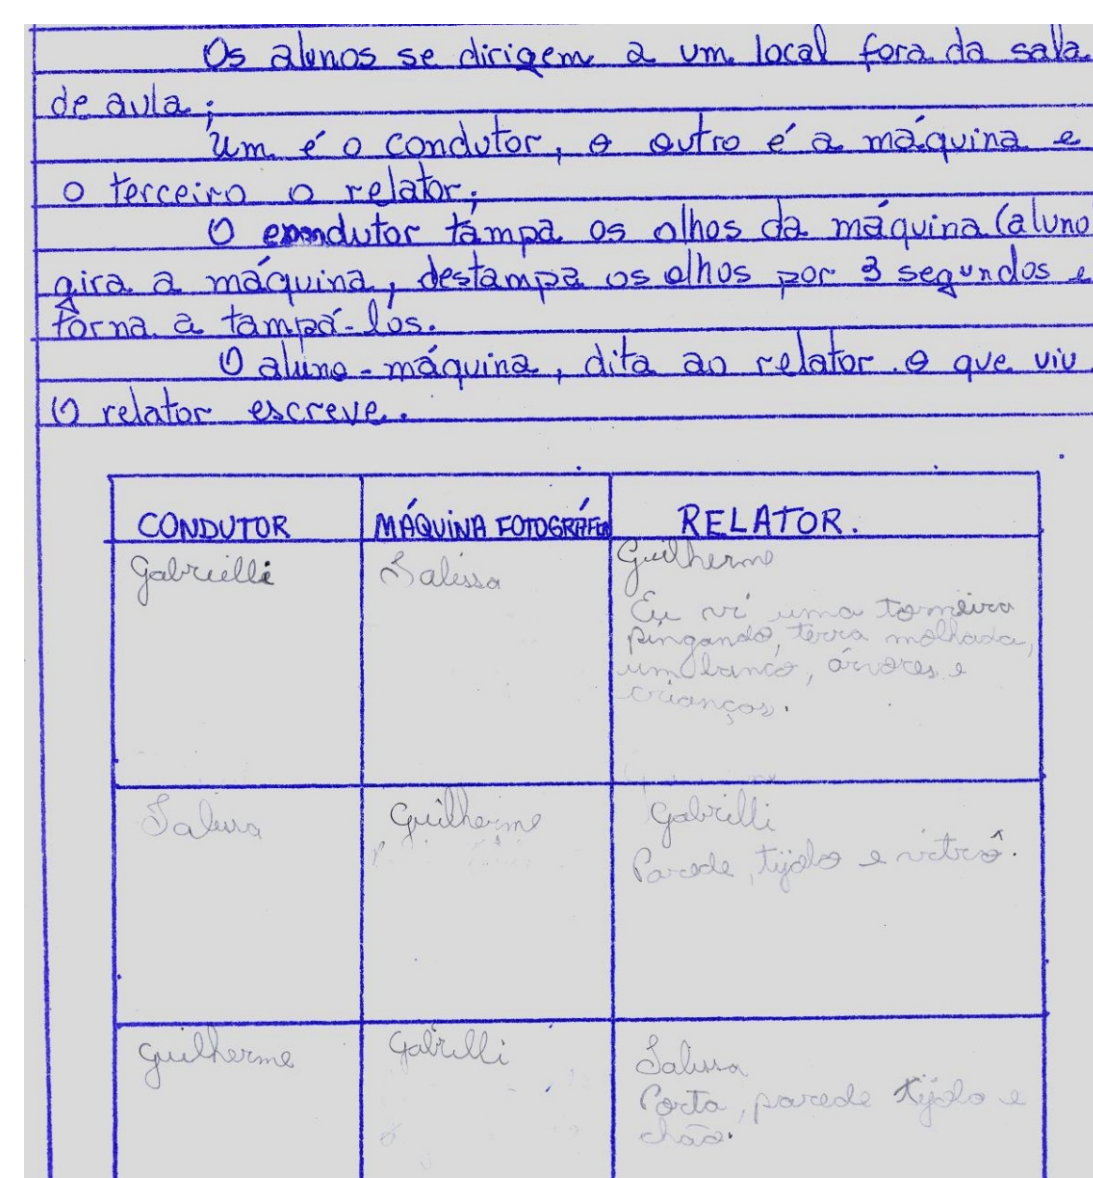 Os alunos se dirigem a um local fora da sala
de aula;
Um é o condutor, o outro é a máquina e
o terceiro o relator;
O condutor tampa os olhos da máquina (aluno
gira a máquina, destampa os olhos por 3 segundos e
torna a tampá-los.
O aluno-máquina, dita ao relator o que viu
O relator escreve.
CONDUTOR MÁQUINA FOTOGRÁFICA RELATOR.
Gabrielli Talissa Guilherme
Eu vi uma torneira
pingando, terra molhada,
um banco, árvores e
crianças.
Guilherme Gabrilli
Parede, tijolo e vitrô.
Guilherme Gabrilli
Porta, parede tijolo e
chão.